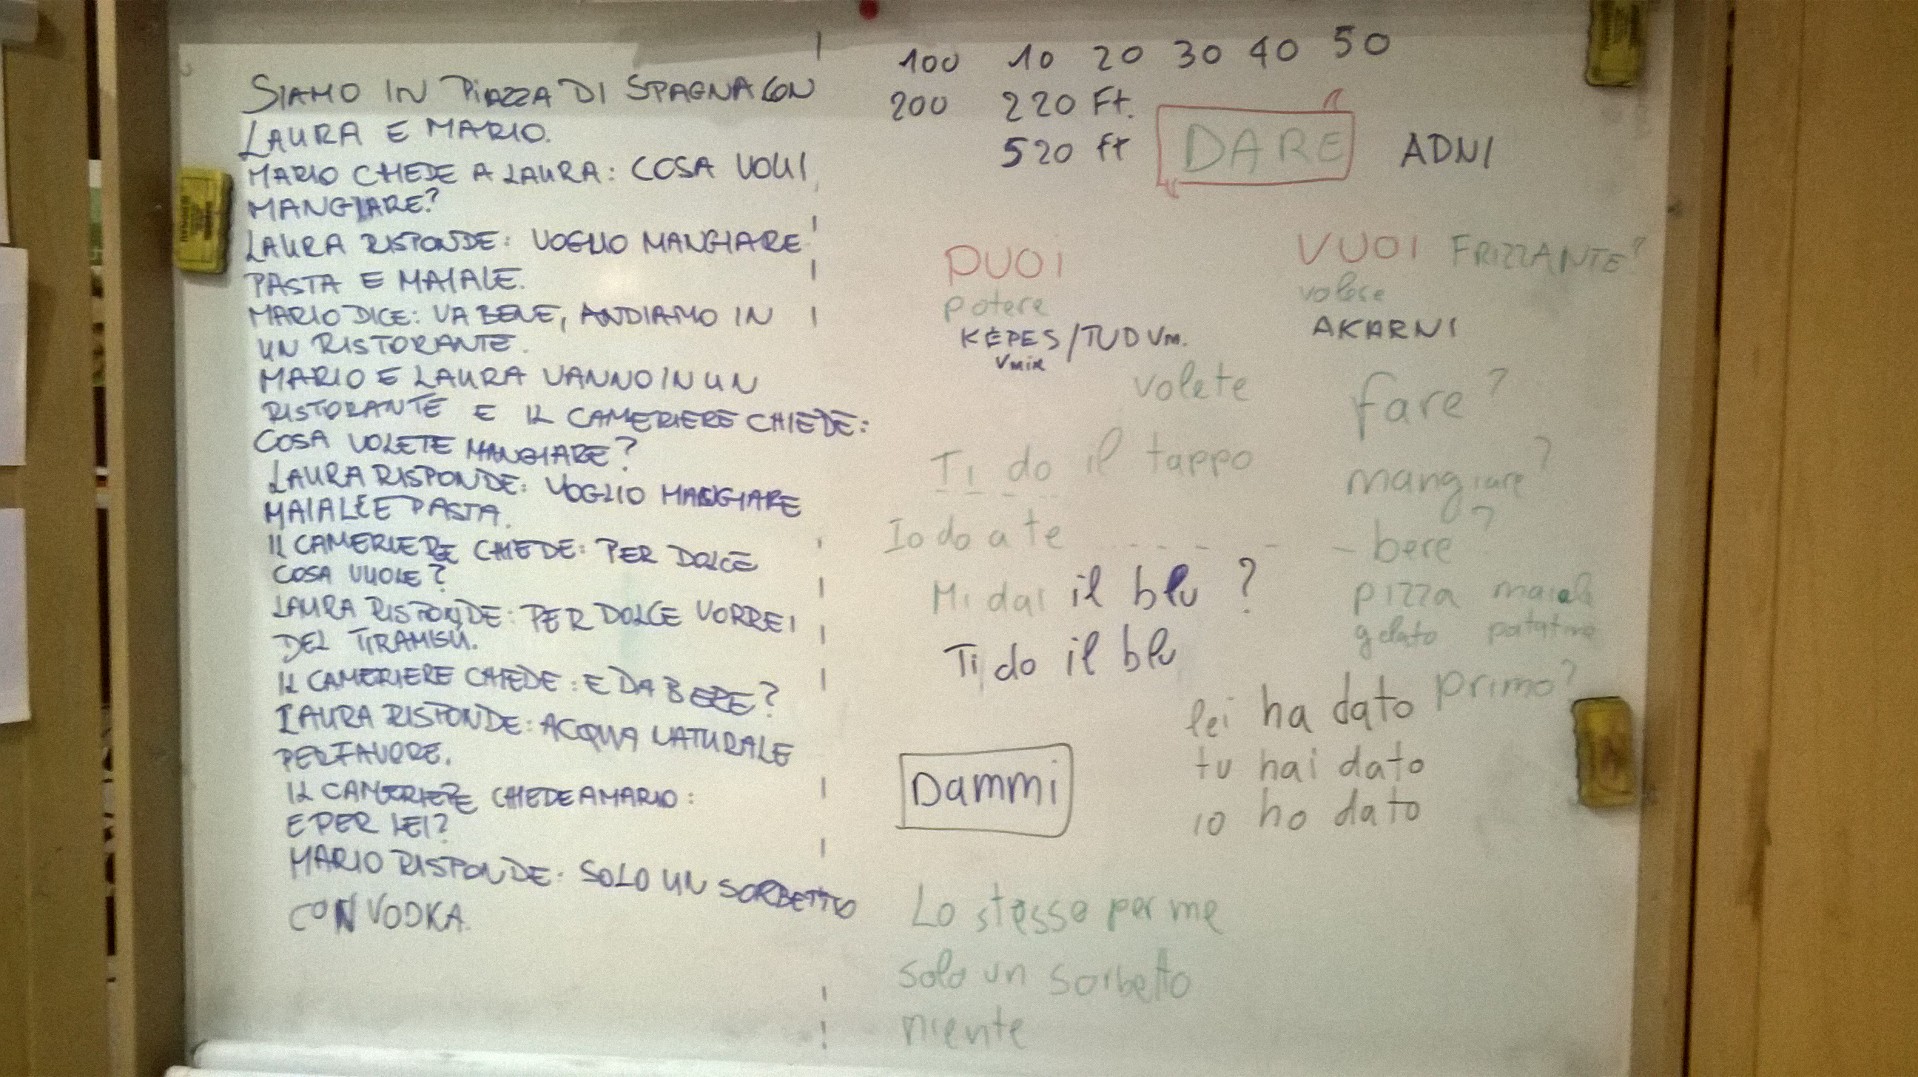 SIAMO IN PIAZZA DI SPAGNA CON
LAURA E MARIO.
MARIO CHEDE A LAURA: COSA VOUI
MANGIARE?
LAURA RISPONDE: VOGLIO MANGIARE
PASTA E MAIALE.
MARIO DICE: VA BENE, ANDIAMO IN
UN RISTORANTE.
MARIO E LAURA VANNO IN UN
RISTORANTE E IL CAMERIERE CHIEDE:
COSA VOLETE MANGIARE?
LAURA RISPONDE: VOGLIO MANGIARE
MAIALE E PASTA.
IL CAMERIERE CHIEDE: PER DOLCE
COSA VUOLE?
LAURA RISPONDE: PER DOLCE VORREI
DEL TIRAMISU.
IL CAMERIERE CHIEDE: E DA BERE?
LAURA RISPONDE: ACQUA NATURALE
PER FAVORE.
IL CAMERIERE CHIEDE A MARIO:
E PER LEI?
MARIO RISPONDE: SOLO UN SORBETTO
CON VODKA.
100 10 20 30 40 50
200 220 Ft.
520 ft DARE ADNI
PUOI VUOI FRIZZANTE?
potere volere
KÉPES/TUD Vm. AKARNI
Vmin
volete fare?
Ti do il tappo mangiare?
Io do a te - - - - - - bere?
Mi dai il blu? pizza maiale
gelato patatine
Ti do il blu
lei ha dato primo?
tu hai dato
Dammi
io ho dato
Lo stesso per me
solo un sorbetto
niente